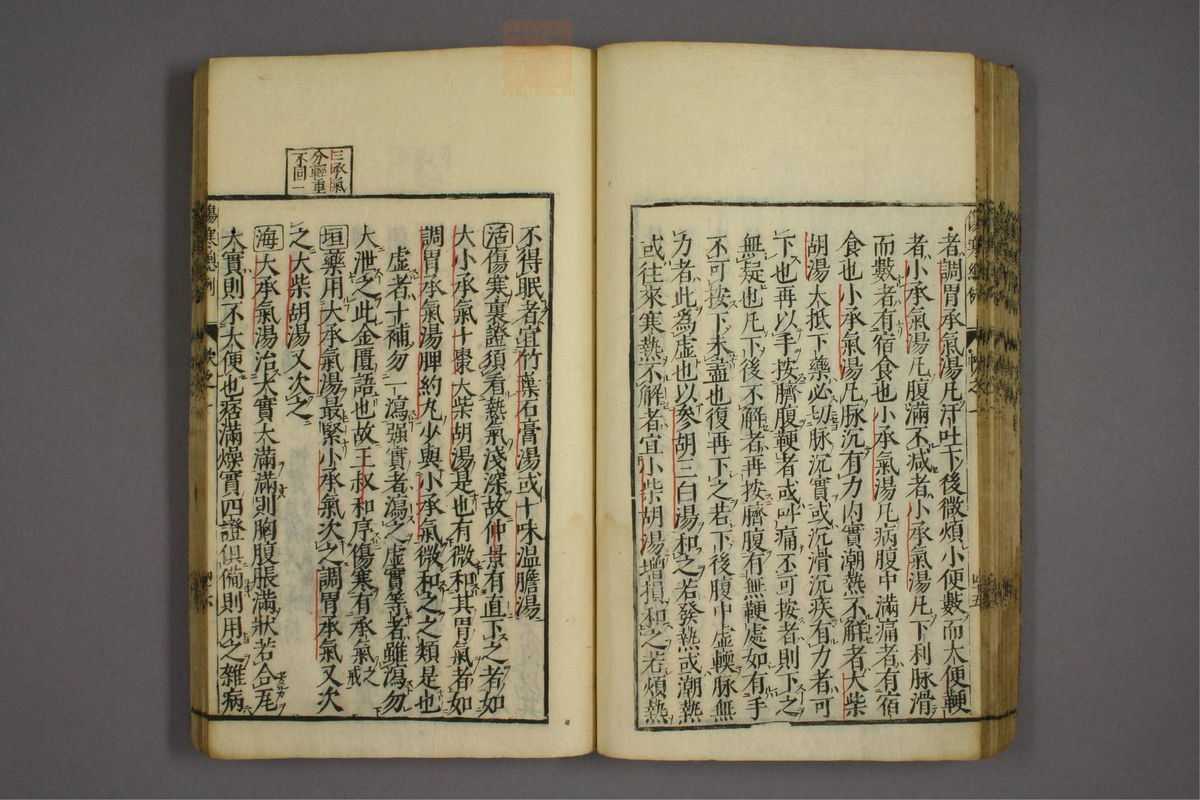 者調胃承氣湯凡汗吐下後微煩小便數而大便鞕
者小承氣湯凡腹滿不减者小承氣湯凡下利脉滑
而數者有宿食也小承氣湯凡病腹中滿痛者有宿
食也小承氣湯凡脉沉有力内實潮熱不解者大柴
胡湯大抵下藥必切脉沉實或沉滑沉疾有力者可
下也再以手按臍腹鞕者或呌痛不可按者則下之
無疑也凡下後不解者再按臍腹有無鞕處如有手
不可按下未盡也復再下之若下後腹中虚輭脉無
力者此為虚也以參胡三白湯和之若發熱或潮熱
或往來寒熱不解者宜小柴胡湯增損和之若煩熱
三承氣
分輕重
不同一
不得眠者宜竹葉石膏湯或十味温膽湯
活傷寒裏證須看熱氣淺深故仲景有直下之者如
大小承氣十棗大柴胡湯是也有微和其胃氣者如
調胃承氣湯脾約丸少與小承氣微和之之類是也
虚者十補勿一瀉强實者瀉之虚實等者雖瀉勿
大泄之此金匱語也故王叔和序傷寒有承氣之戒
垣藥用大承氣湯最緊小承氣次之調胃承氣又次
之大柴胡湯又次之
海大承氣湯治大實大滿滿則胸腹脹滿狀若合瓦
大實則不大便也痞滿燥實四證俱備則用之雜病